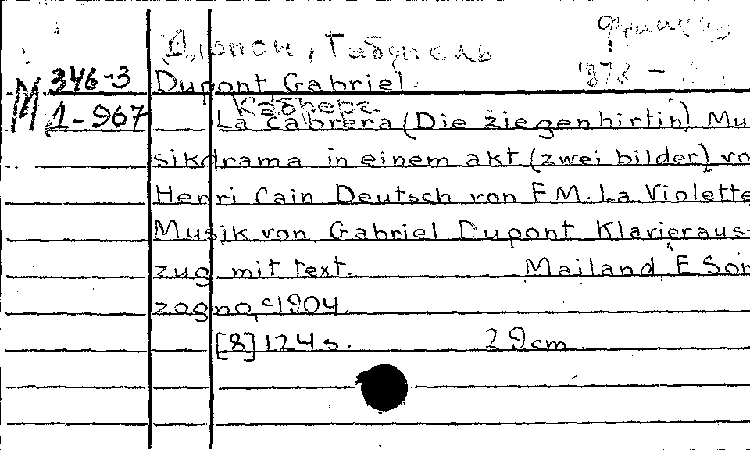 Дюпон, Габриель
М 346-3
Д-967
Dupont Gabriel. 1878 -
Кабрера
La Cabrera (Die ziegenhirtin) Mu
sikdrama in einem akt (zwei bilder) vo
Henri Cain Deutsch von F.M. La Violette
Musik von Gabriel Dupont Klavieraus-
zug mit text. Mailand E Son
zogno, c1904
[8] 124 s. 29 cm